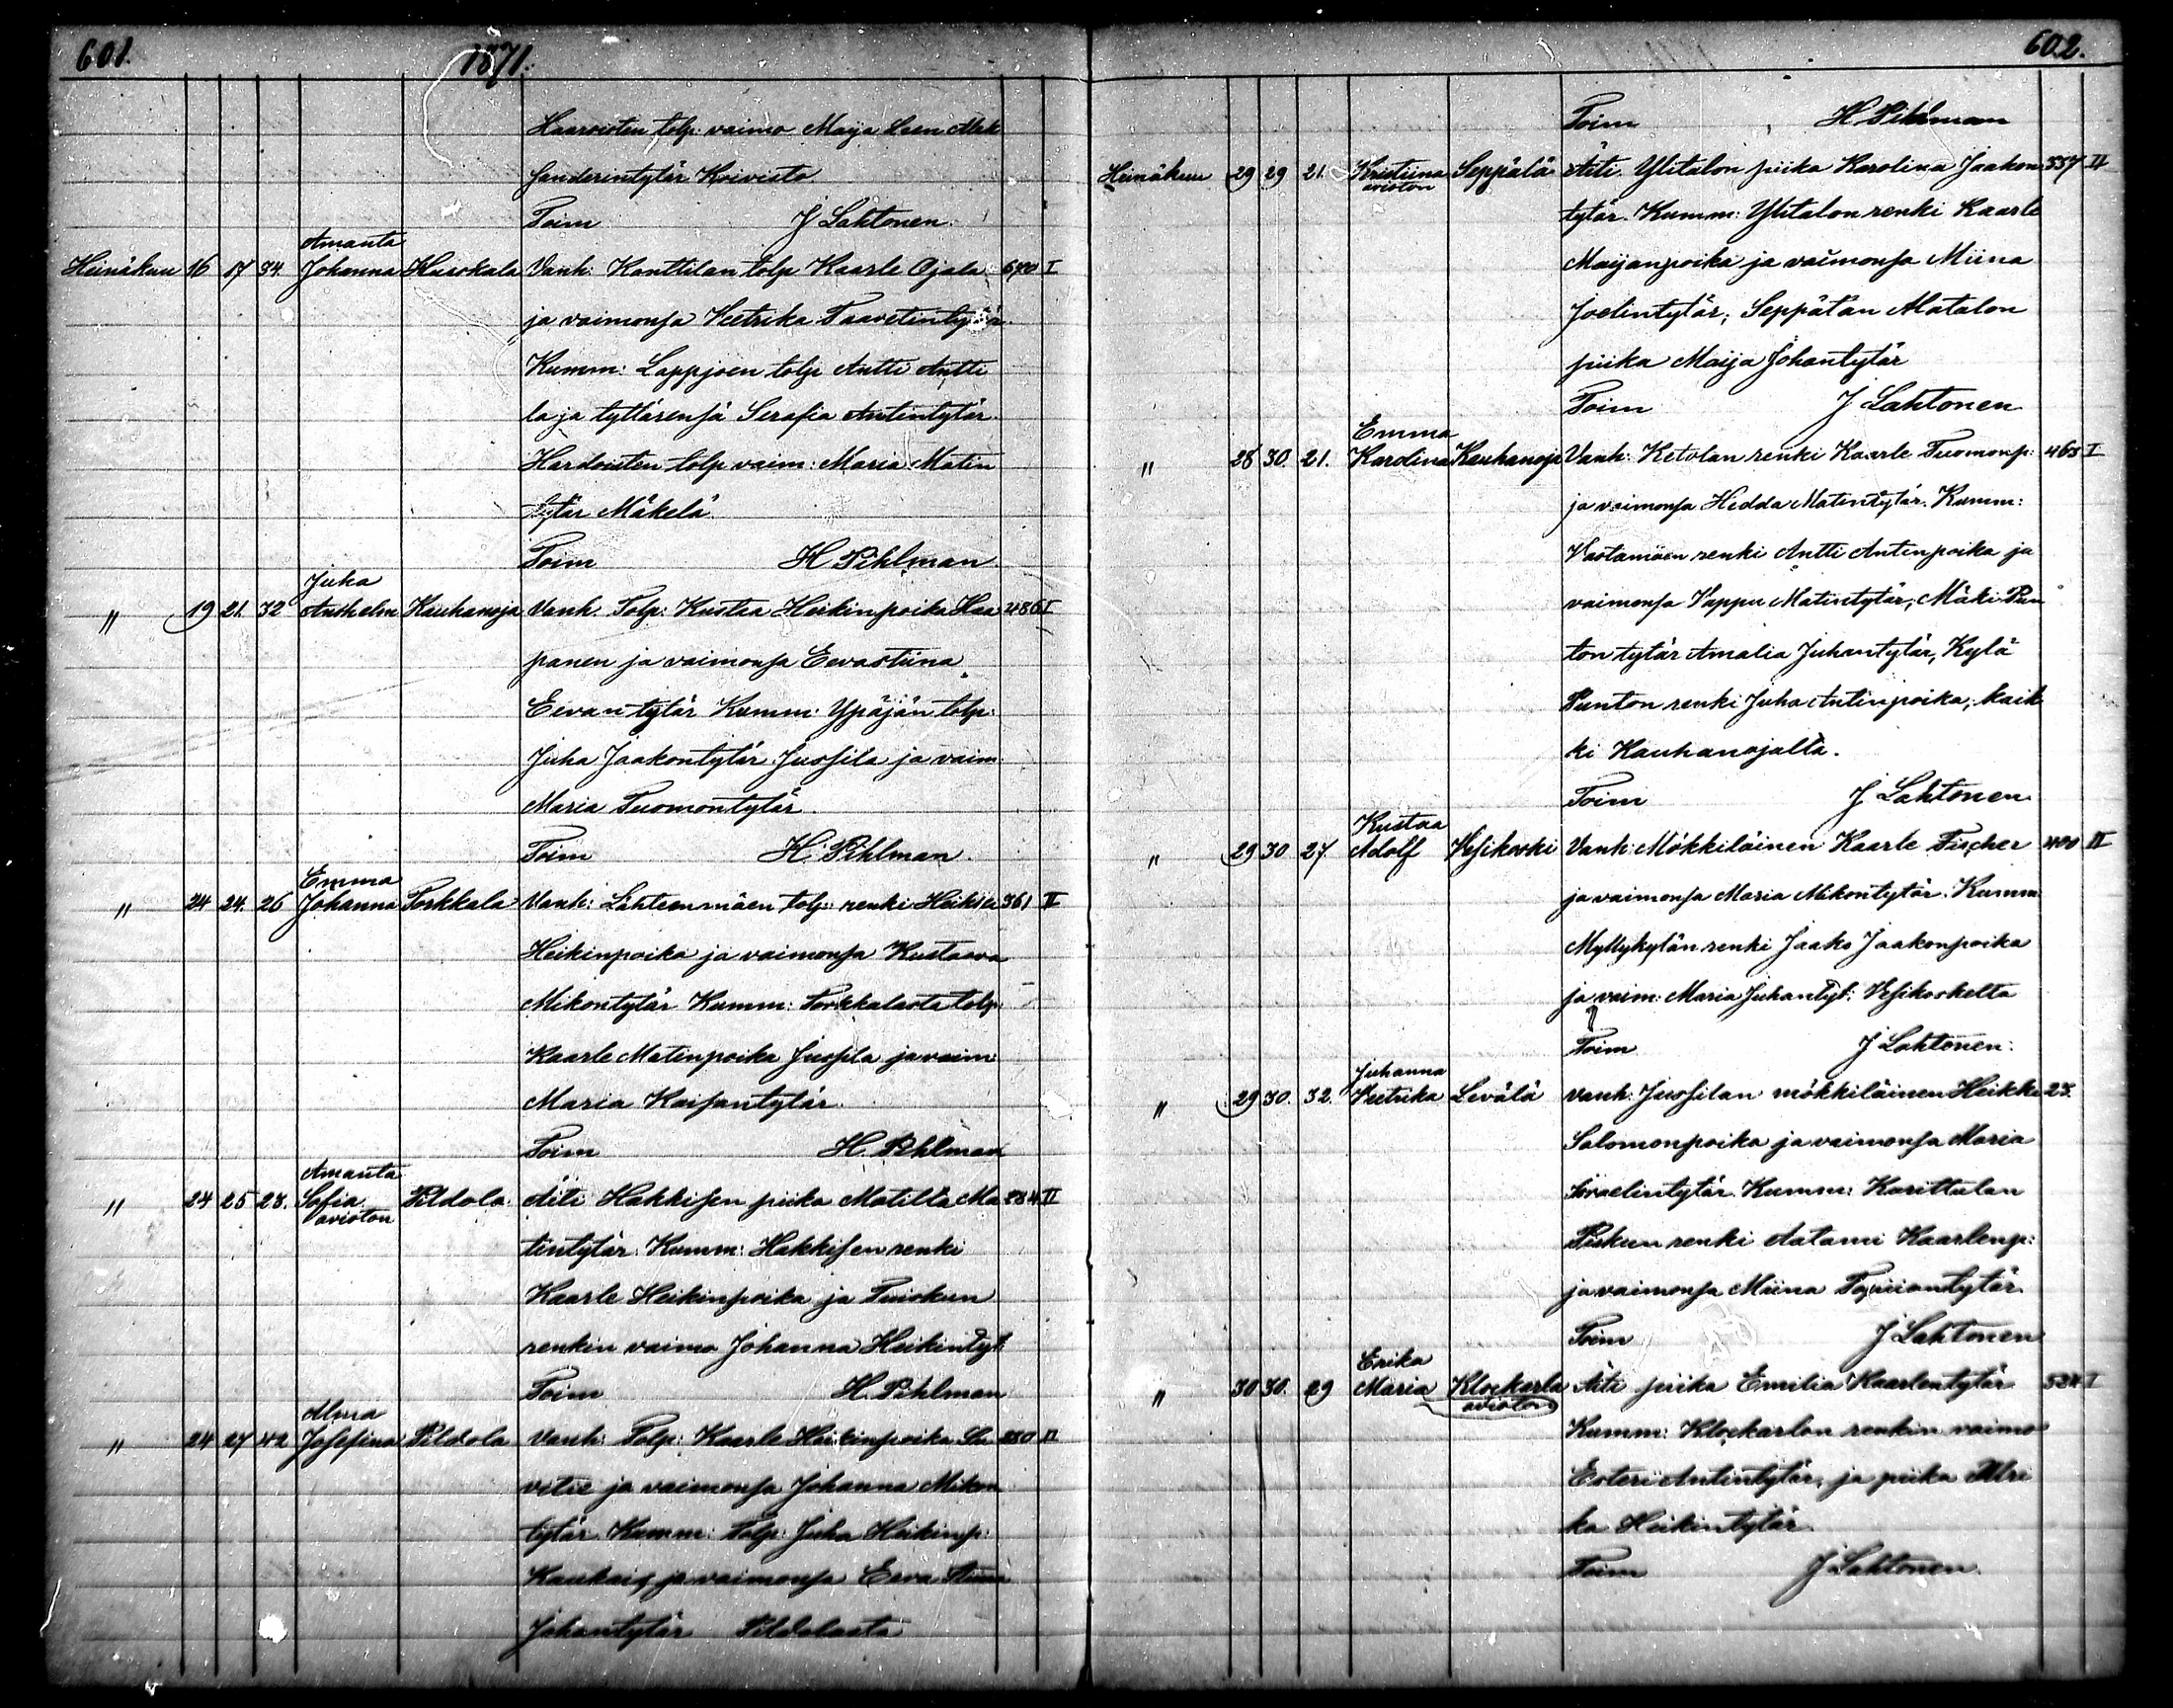 601. 1871.
Haaroisten tolp: vaimo Maija Leen Alek
sanderintytär Koivisto.
Toim J Lahtonen.
Amanta
Heinäkuu 16 17 34 Johanna Kusokala Vanh: Konttilan tolp Kaarle Ojala 640 I
ja vaimonsa Veetrika Taavetintytär.
Kumm: Lappjoen tolp Antti Antti
la ja tyttärensä Serafia Antintytär.
Hardoisten tolp vaim: Maria Matin
tytär Mäkelä.
Toim H Pihlman.
Juha
" 19 21. 32 Anshelm Kauhanoja Vanh. Tolp: Kustaa Heikinpoika Haa 486 I
panen ja vaimonsa Eevastiina
Eevantytär Kumm: Ypäjän tolp:
Juha Jaakontytär Jussila ja vaim
Maria Tuomontytär.
Toim H. Pihlman.
Emma
" 24 24. 26 Johanna Porkkala Vanh: Lähteenmäen tolp: renki Heikki 361 II
Heikinpoika ja vaimonsa Kustaava
Mikontytär Kumm: Porkkalasta tolp.
Kaarle Matinpoika Jussila ja vaim
Maria Kaisantytär.
Toim H. Pihlman
Amanta
" 24 25 28. Sofia Pildola Äiti Hakkisen piika Matilta Ma 284 II
avioton
tintytär. Kumm: Hakkisen renki
Kaarle Heikinpoika ja Tuiskun
renkin vaimo Johanna Heikintyt
Toim H. Pihlman
Alma
" 24 27 42 Josefina Pildola Vanh: Tolp: Kaarle Heikinpoika Sa 280 II
vitie ja vaimonsa Johanna Mikon
tytär. Kumm: tolp: Juha Heikinp:
ja vaimonsa Eeva Stiina
Johantytär Pildolasta
602.
Toim H Pihlman
Heinäkuu 29 29 21. Kristiina Seppälä Äiti. Ylitalon piika Karolina Jaakon 337 II
avioton
tytär. Kumm: Ylitalon renki Kaarle
Maijanpoika ja vaimonsa Miina
Joelintytär; Seppälän Alatalon
piika Maija Johantytär
Toim J Lahtonen
Emma
" 28 30. 21. Karolina Kauhanoja Vanh: Ketolan renki Kaarle Tuomonp: 463 I
ja vaimonsa Hedda Matintytär. Kumm:
Vastamäen renki Antti Antinpoika ja
vaimonsa Vappu Matintytär; Mäki-Pun
ton tytär Amalia Juhantytär, Kylä
Punton renki Juha Antinpoika; kaik
ki Kauhanojalta.
Toim J Lahtonen
Kustaa
" 29 30 27. Adolf Vesikoski Vanh: Mökkiläinen Kaarle Fischer 400 II
ja vaimonsa Maria Mikontytär. Kumm:
Myllykylän renki Jaako Jaakonpoika
ja vaim: Maria Juhantyt: Vesikoskelta
Toim J Lahtonen.
Juhanna
" 29 30. 32. Veetrika Levälä Vanh: Jussilan mökkiläinen Heikki 23.
Salomonpoika ja vaimonsa Maria
Israelintytär. Kumm: Karittalan
Piskun renki Aatami Kaarlenp:
ja vaimonsa Miina Topiiantytär.
Toim J Lahtonen
Erika
" 30 30. 29 Maria Klockarla Äiti piika Emilia Kaarlentytär 524 I
avioton
Kumm: Klockarlan renkin vaimo
Esteri Antintytär, ja piika Ulri
ka Heikintytär.
Toim J Lahtonen.